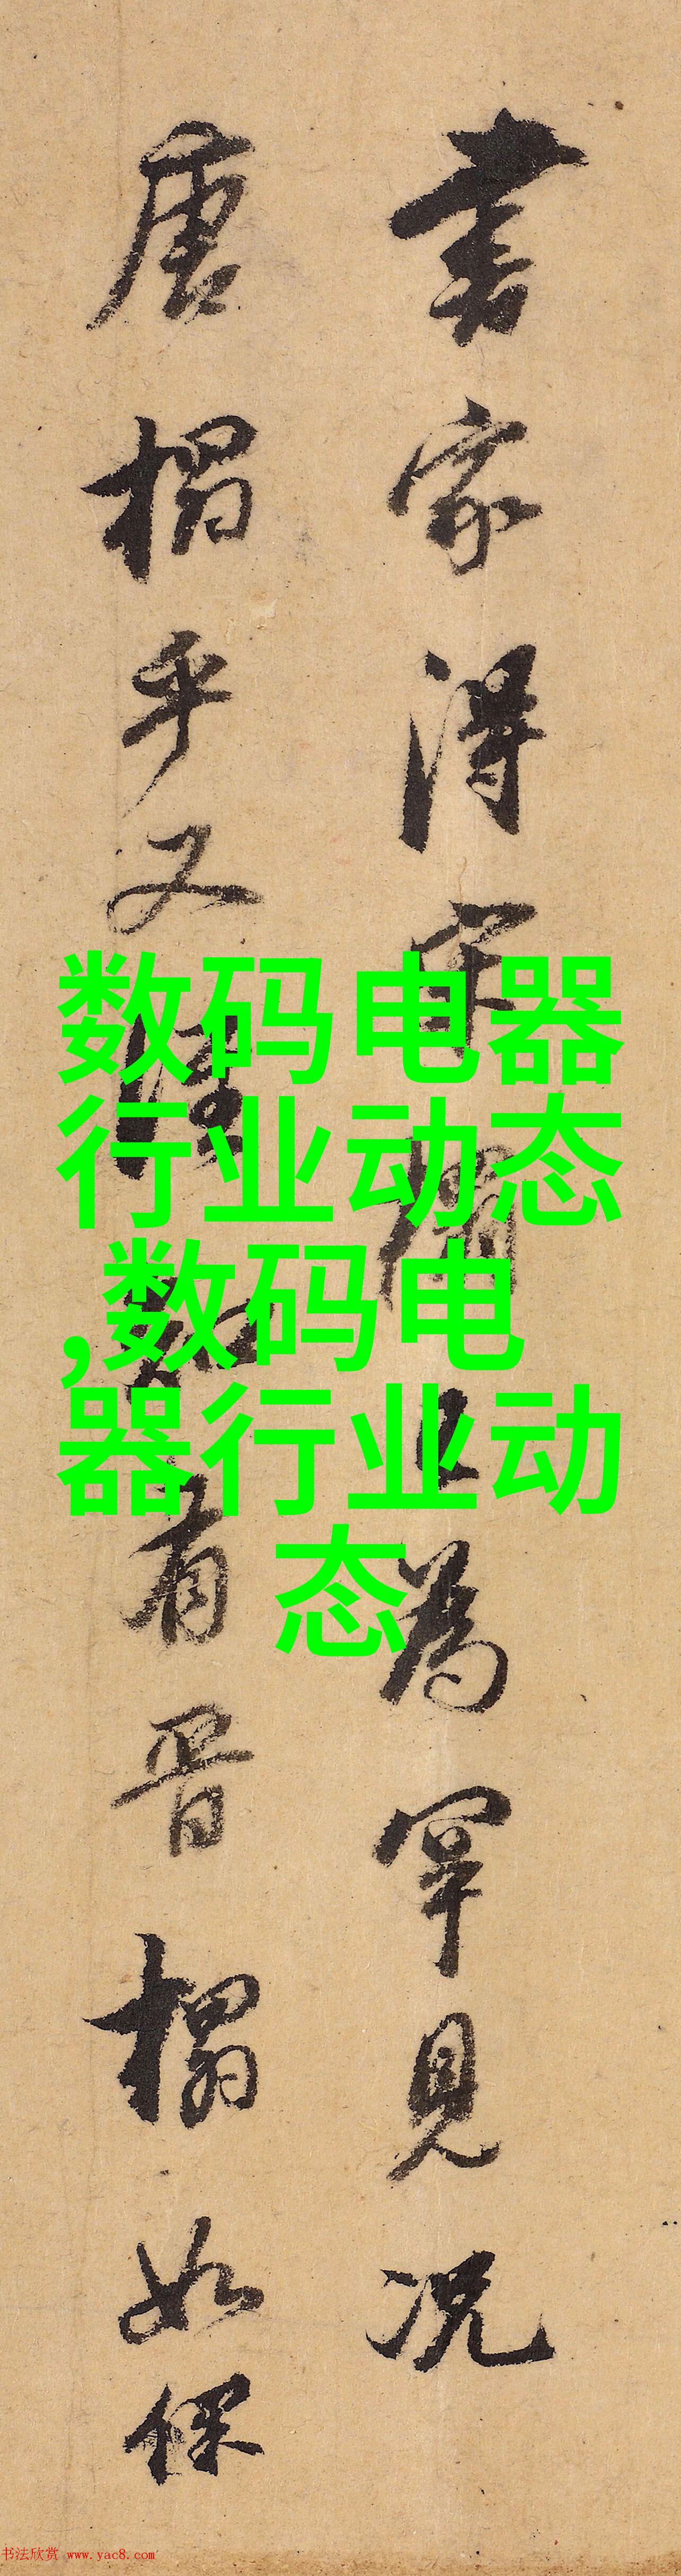 書家得宋搨已為罕見況
唐搨乎又有晋搨如保
数码电器
行业动态
,数码电
器行业动
态
书法欣赏 www.yac8.com